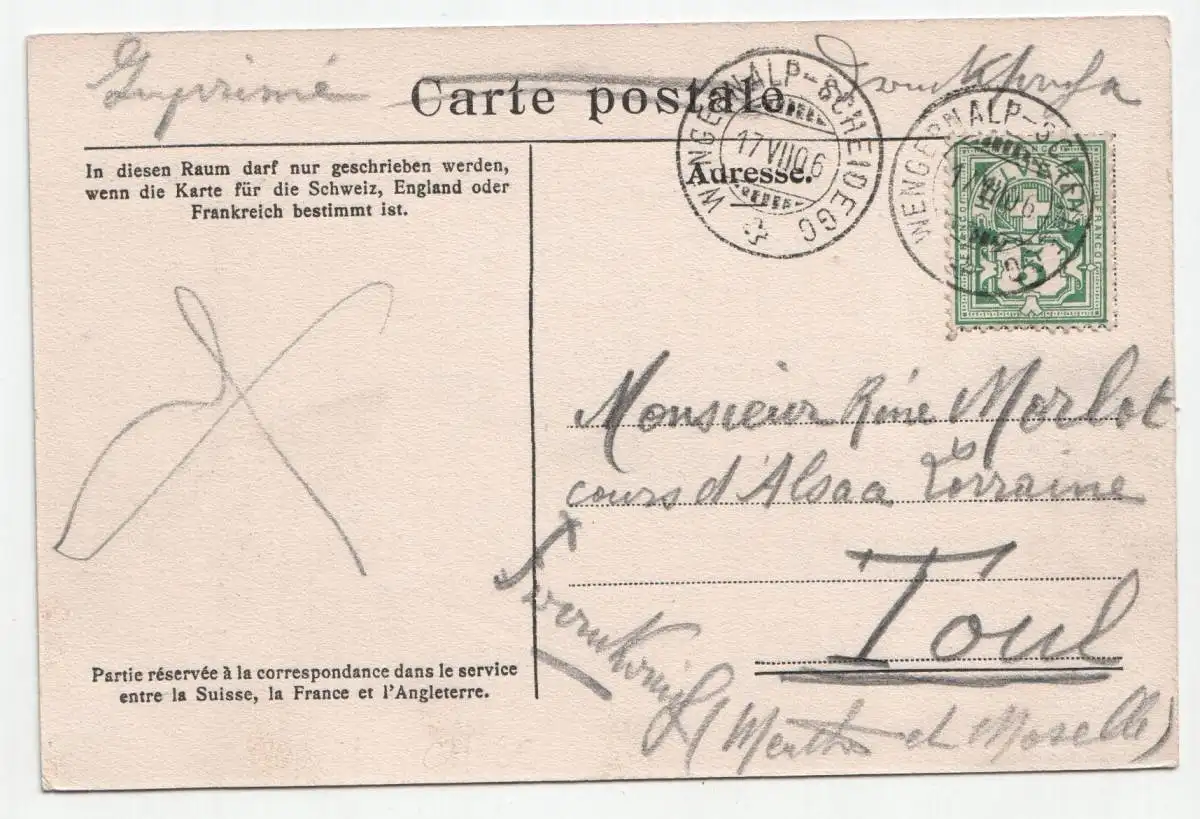 Imprimé
Carte postale
Adresse.
WENGERNALP-SCHEIDEGG
17 VII 06
WENGERNALP-SCHEIDEGG
17 VII 06
HELVETIA
FRANCO
FRANCO
5
In diesen Raum darf nur geschrieben werden,
wenn die Karte für die Schweiz, England oder
Frankreich bestimmt ist.
Monsieur Réné Morlot
cours d'Alsaa Lorraine
Toul
(Meurthe et Moselle)
Partie réservée à la correspondance dans le service
entre la Suisse, la France et l'Angleterre.